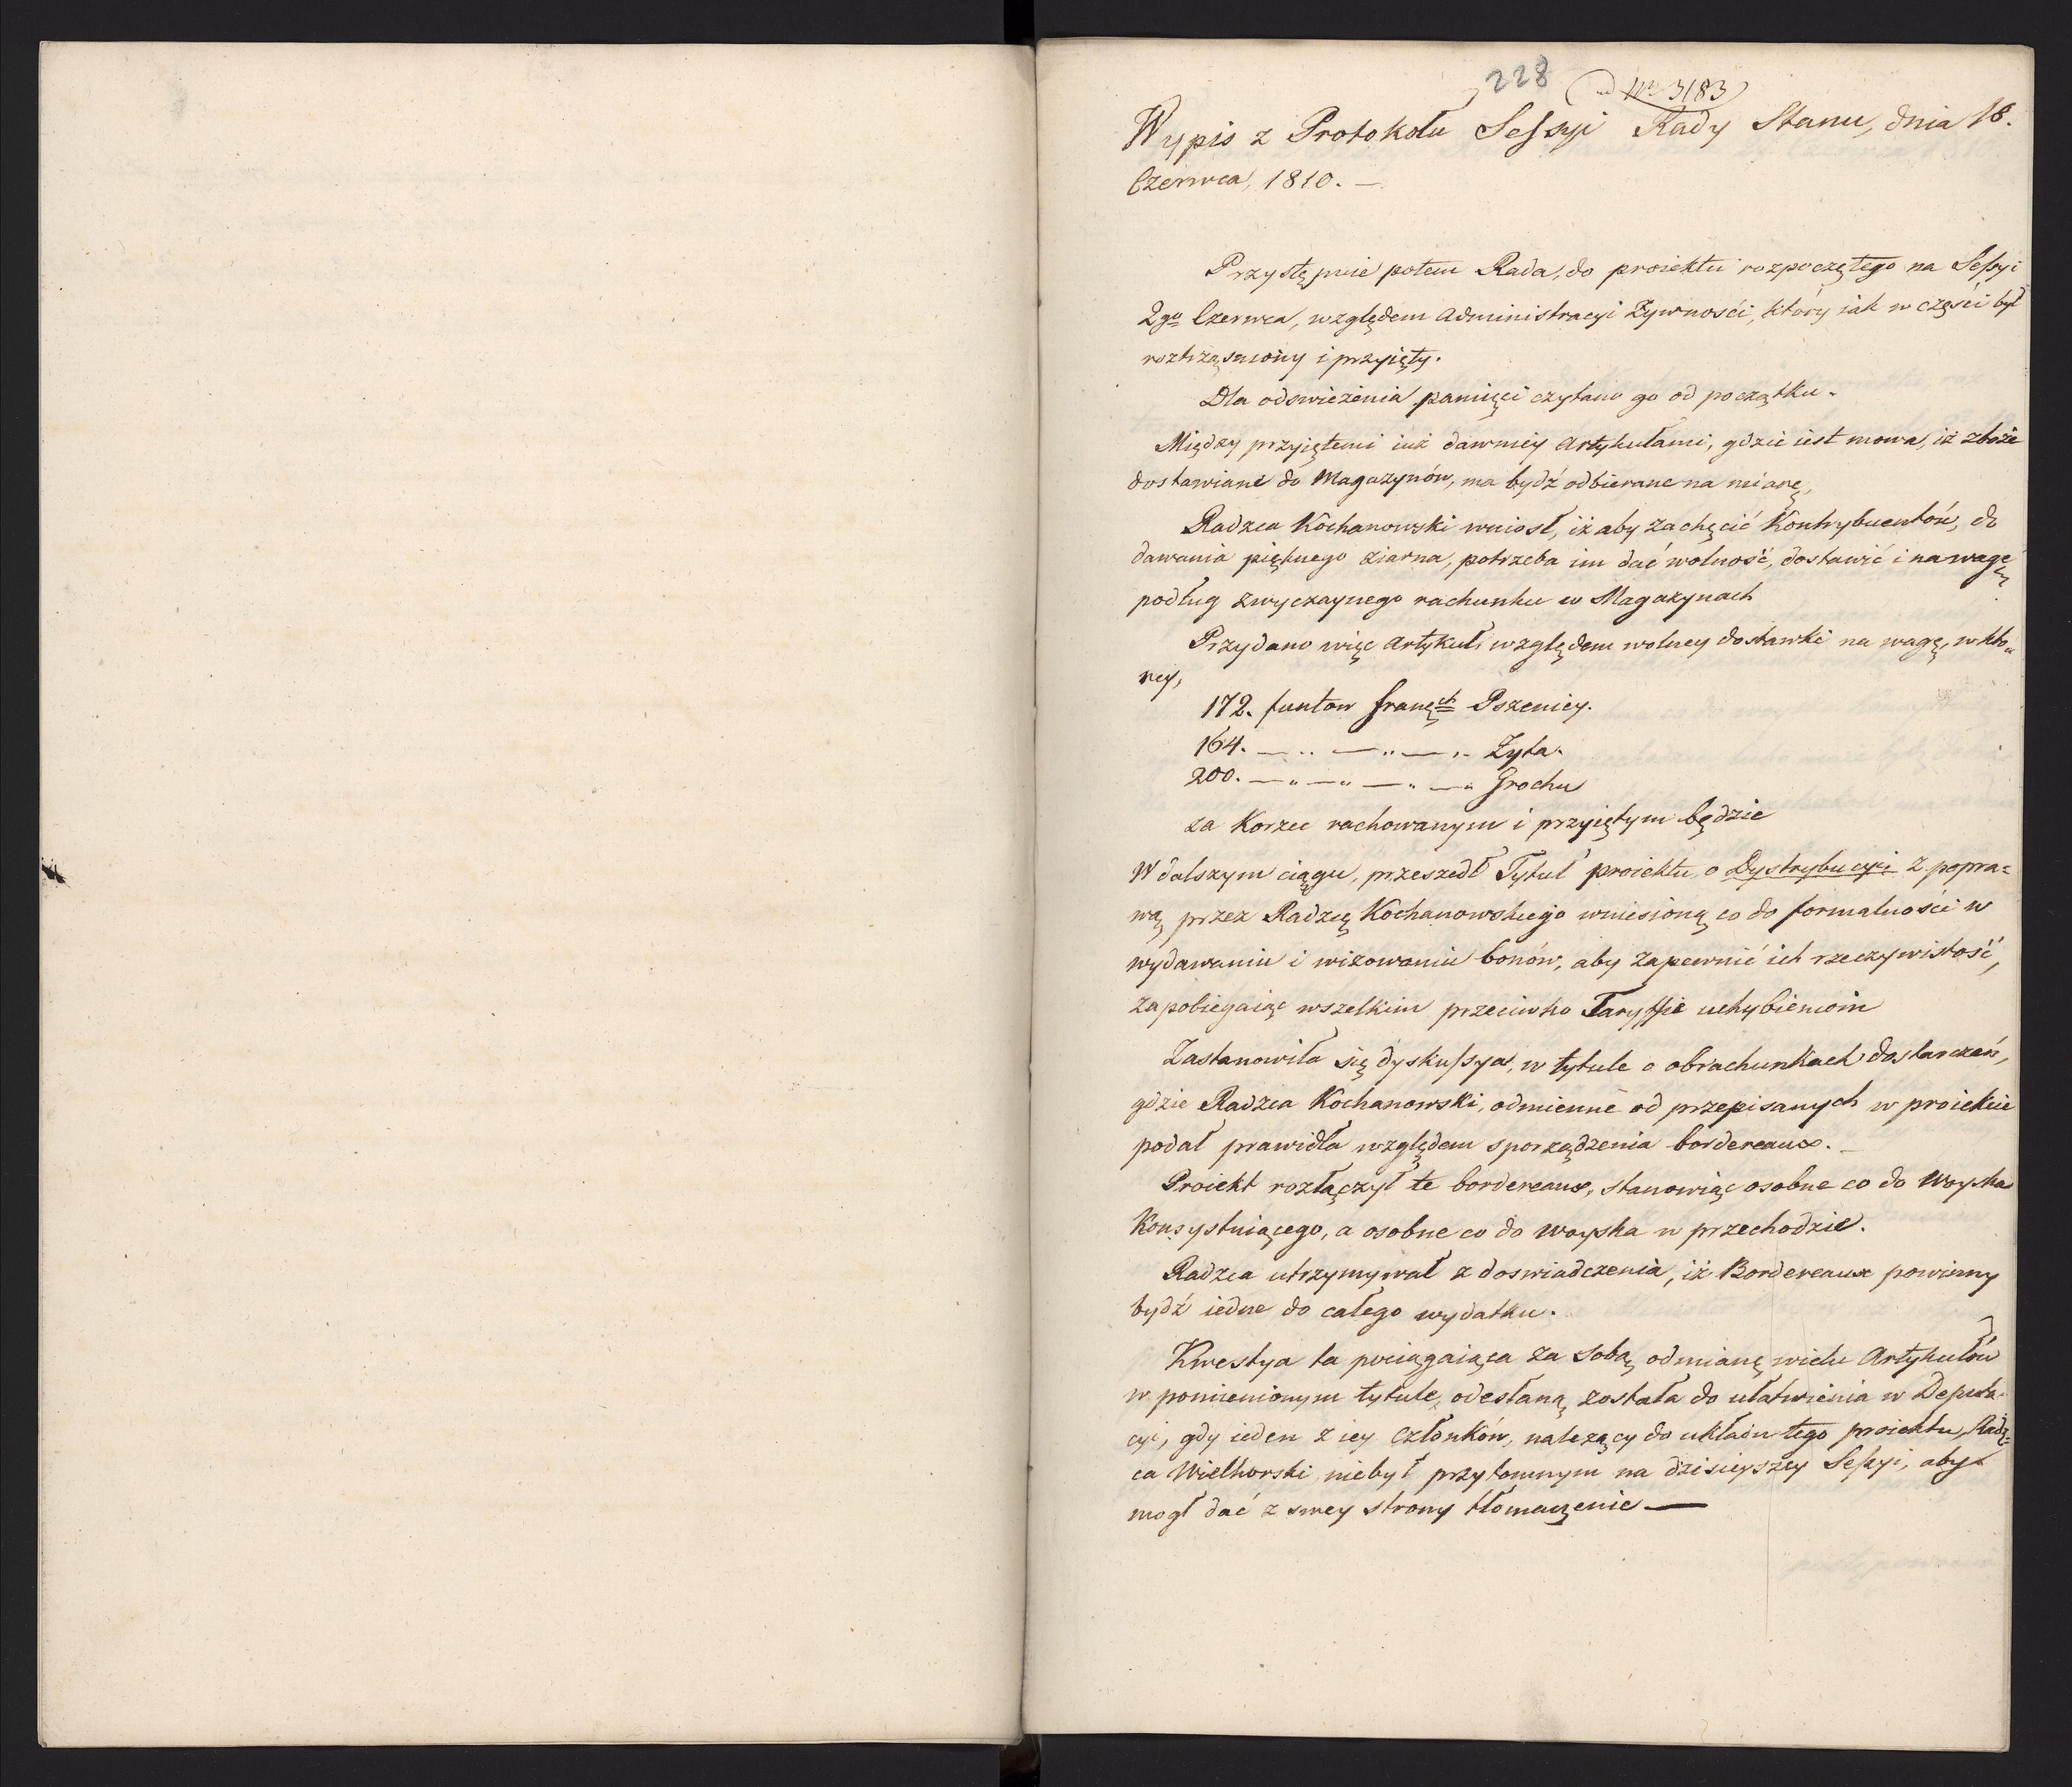 228
ad Nro 3183
Wypis z Protokołu Sessyi Rady Stanu, dnia 18.
Czerwca, 1810. —
Przystępuie potem Rada, do proiektu rozpoczętego na Sessyi
2go Czerwca, względem Administracyi Żywności, który iak w części był
roztrząsniony i przyięty.
Dla odswieżenia pamięci czytano go od początku.
Między przyiętemi iuż dawniey Artykułami, gdzie iest mowa, iż zboże
dostawiane do Magazynów, ma bydź odbierane na miarę,
Radzca Kochanowski wniosł, iż aby zachęcić Kontrybuentów, do
dawania pięknego ziarna, potrzeba im dać wolność, dostawić i na wagę
podług zwyczaynego rachunku w Magazynach
Przydano więc Artykuł, względem wolney dostawki na wagę, w któ=
rey,
172. funtow francch Pszenicy.
164. — .. — .. — .. Żyta.
200. — .. — .. — .. — .. Grochu
za Korzec rachowanym i przyiętym będzie
W dalszym ciągu, przeszedł Tytuł proiektu, o Dystrybucyi z popra=
wą przez Radzcę Kochanowskiego wniesioną co do formalności w
wydawaniu i wizowaniu bonów, aby zapewnić ich rzeczywistość,
zapobiegaiąc wszelkim przeciwko Taryffie uchybieniom
Zastanowiła się dyskussya, w tytule o obrachunkach dostarczeń,
gdzie Radzca Kochanowski, odmienne od przepisanych w proiekcie
podał prawidła względem sporządzenia bordereaux. —
Proiekt rozłączył te bordereaux, stanowiąc osobne co do Woyska
Konsystuiącego, a osobne co do woyska w przechodzie.
Radzca utrzymywał z doswiadczenia, iż Bordereaux powinny
bydź iedne do całego wydatku.
Kwestya ta pociągaiąca za sobą odmianę wielu Artykułów
w pomienionym tytule, odesłaną została do ułatwienia w Deputa=
cyi, gdy ieden z iey Członków, należący do układu tego proiektu, Radz=
ca Wielhorski, niebył przytomnym na dzisieyszey Sessyi, aby
mogł dać z swey strony tłomaczenie —